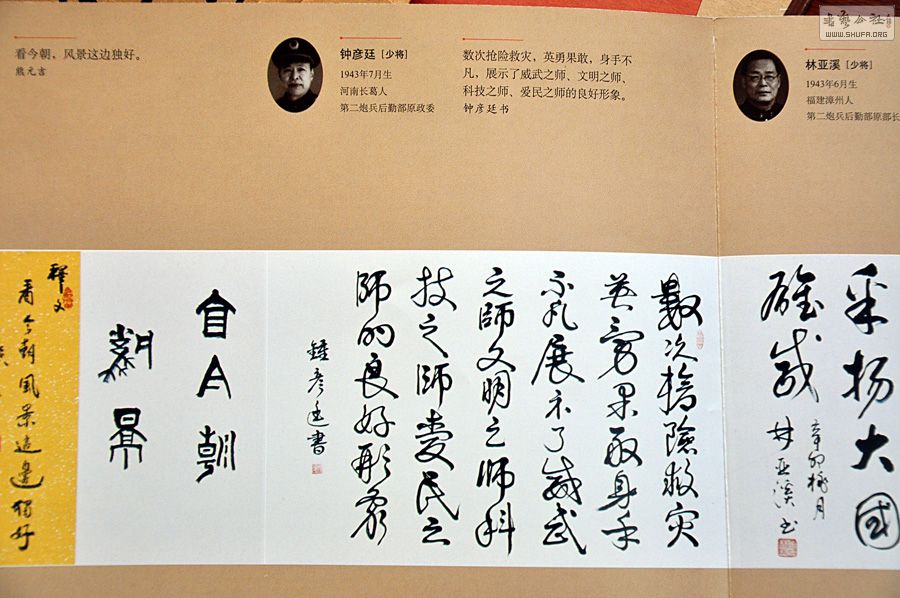 WWW.SHUFA.ORG
看今朝，风景这边独好。
熊元吉
钟彦廷［少将］
1943年7月生
河南长葛人
第二炮兵后勤部原政委
数次抢险救灾，英勇果敢，身手不
凡，展示了威武之师、文明之师、
科技之师、爱民之师的良好形象。
钟彦廷书
林亚溪［少将］
1943年6月生
福建漳州人
第二炮兵后勤部原部长
采扬大国
雄威
林亚溪书
數次搶險救灾
英勇果敢身手
不凡展示了威武
之師文明之師科
技之師愛民之
師的良好形象
鍾彦廷書
釋文
看今朝風景這邊獨好